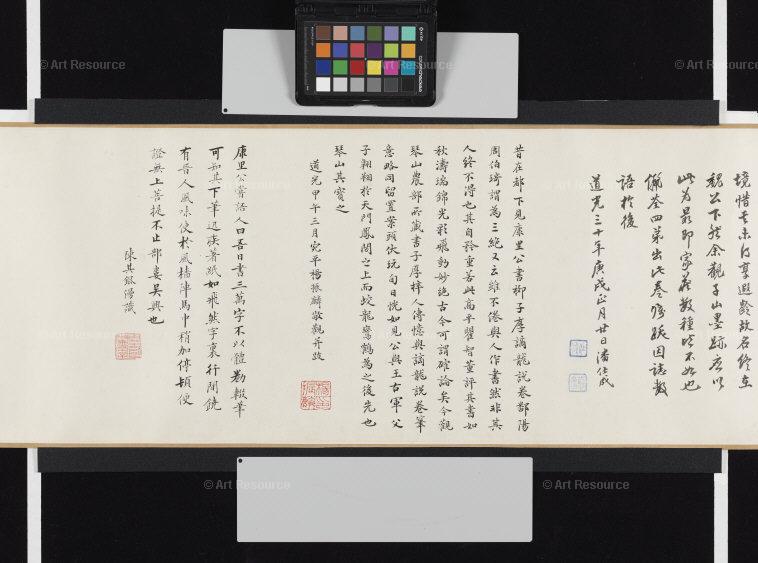 境惜其未得享遐齡故名終在
魏公下然余觀子山墨跡應以
此為最即家藏數種皆不如也
佩荃四弟出此卷屬跋因誌數
語於後
道光三十年庚戌正月廿日潘仕成
昔在都下見康里公書柳子厚謫龍說卷鄱陽
周伯琦謂為三絕又云雖不倦與人作書然非其
人終不得也其自矜重若此高平翟智董評其書如
秋濤瑞錦光彩飛動妙絕古今可謂確論矣今觀
琴山農部所藏書子厚梓人傳憶與謫龍說卷筆
意略同留置案頭伏玩旬日恍如見公與王右軍父
子翱翔於天門鳳閣之上而蛟龍鸞鶴為之後先也
琴山其寶之
道光甲午三月宛平楊振麟敬觀并跋
康里公嘗語人曰吾日書三萬字不以體勩輟筆
可知其下筆迅疾著紙如飛然字裏行間饒
有晉人風味使於風檣陣馬中稍加停頓便
證無上菩提不止部婁吳興也
陳其錕謾識
© Art Resource
© Art Resource
© Art Resource
© Art Resource
© Art Resource
© Art Resource
© Art Resource
© Art Resource
© Art Resource